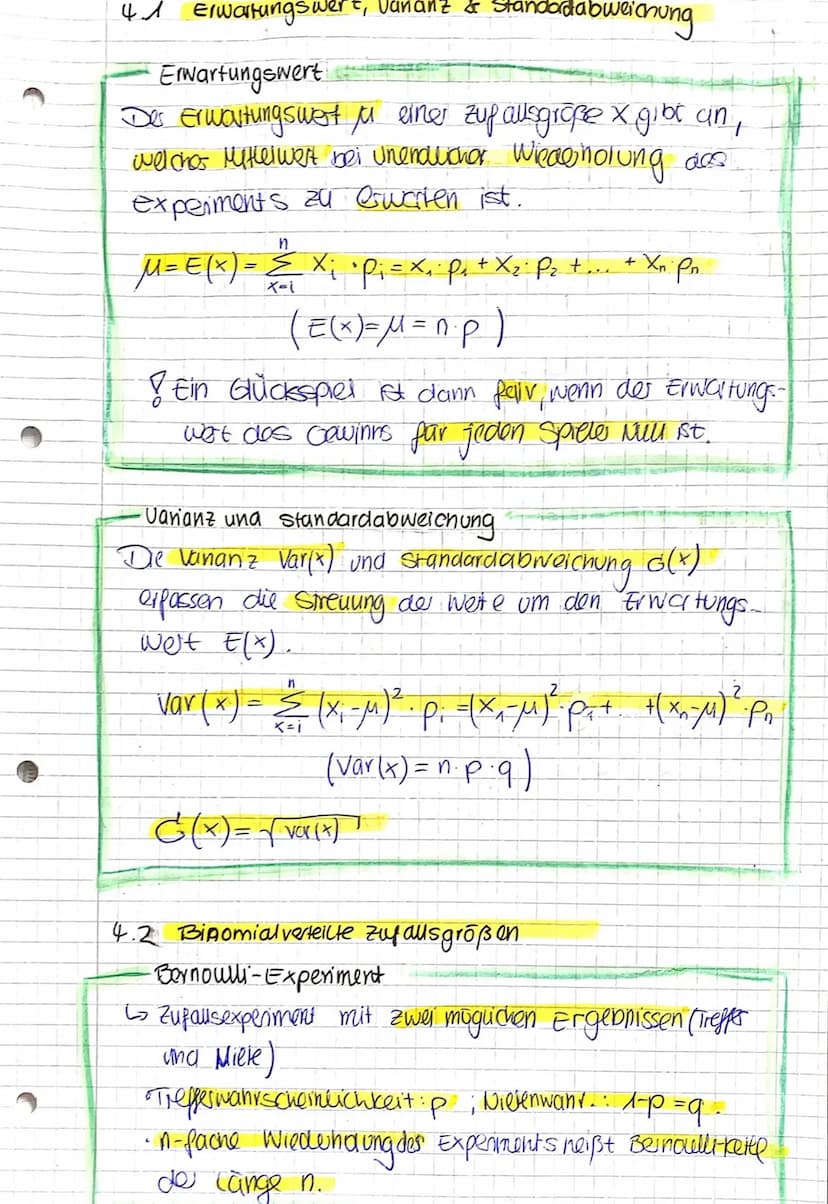 4.1 Erwartungswert, Varianz & Standardabweichung
Erwartungswert
Der Erwartungswert μ einer Zufallsgröße X gibt an,
welcher Mittelwert bei unendlicher Wiederholung des
Experiments zu erwarten ist.
μ = E(x) = n∑x=i xi · pi = x1 · p1 + x2 · p2 + ... + xn · pn
( E(x) = μ = n · p )
! Ein Glückspiel ist dann fair, wenn der Erwartungs-
wert des Gewinns für jeden Spieler Null ist.
Varianz und Standardabweichung
Die Varianz Var(x) und Standardabweichung σ(x)
erfassen die Streuung der Werte um den Erwartungs-
wert E(x).
Var(x) = n∑x=i (xi-μ)² · pi = (x1-μ)² · p1 + .. + (xn-μ)² · pn
(Var(x) = n · p · q)
σ(x) = √Var(x)
4.2 Binomialverteilte Zufallsgrößen
Bernoulli-Experiment
↳ Zufallsexperiment mit zwei möglichen Ergebnissen (Treffer
und Niete)
· Trefferwahrscheinlichkeit: p ; Nietenwahr.: 1-p = q.
· n-fache Wiederholung des Experiments heißt Bernoulli-Kette
der Länge n.